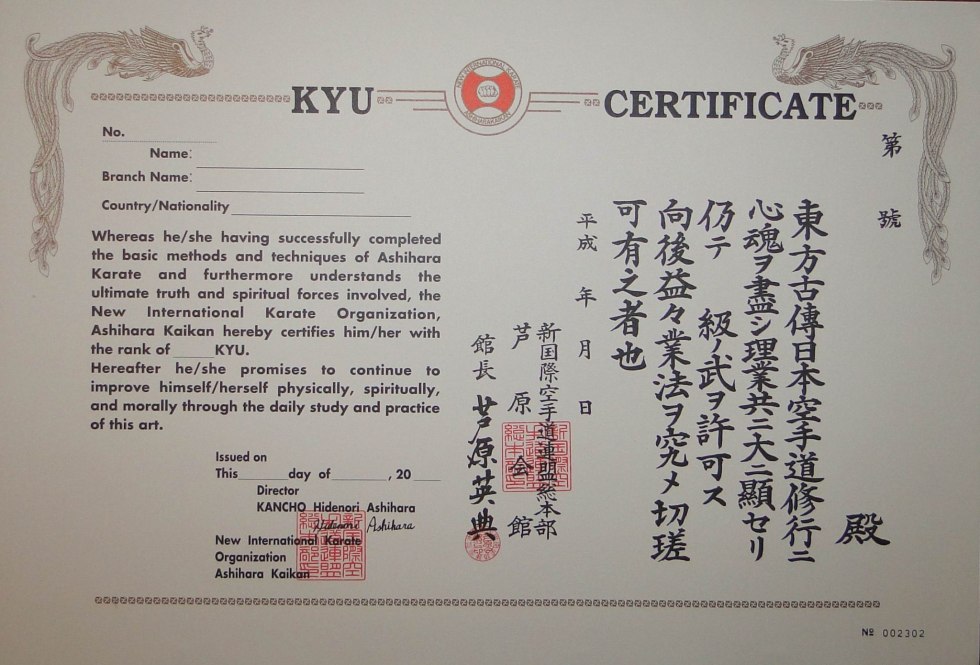 KYU CERTIFICATE
No.
Name:
Branch Name:
Country/Nationality
Whereas he/she having successfully completed
the basic methods and techniques of Ashihara
Karate and furthermore understands the
ultimate truth and spiritual forces involved, the
New International Karate Organization,
Ashihara Kaikan hereby certifies him/her with
the rank of KYU.
Hereafter he/she promises to continue to
improve himself/herself physically, spiritually,
and morally through the daily study and practice
of this art.
Issued on
This day of , 20
Director
KANCHO Hidenori Ashihara
Hidenori Ashihara
New International Karate
Organization
Ashihara Kaikan
第 號
殿
東方古傳日本空手道修行ニ
心魂ヲ盡シ理業共ニ大ニ顯セリ
仍テ 級ノ武ヲ許可ス
向後益々業法ヲ究メ切瑳
可有之者也
平成 年 月 日
新国際空手道連盟総本部
芦原会館
館長 芦原英典
№ 002302